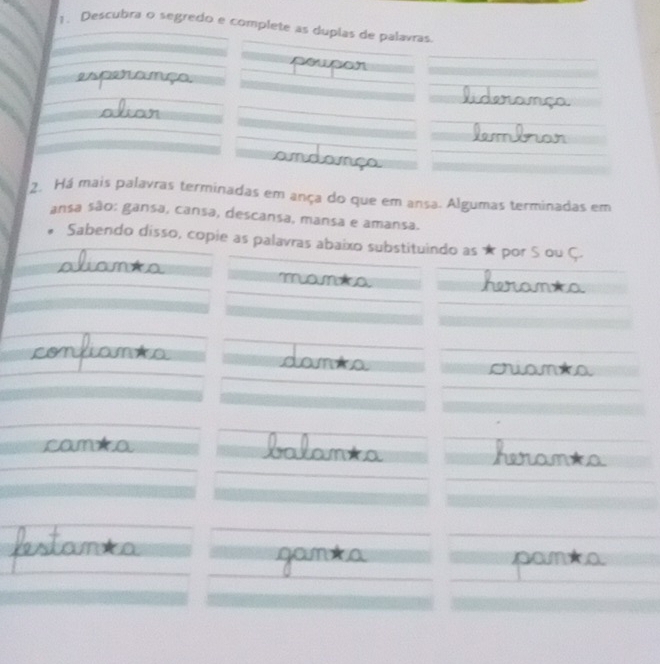 1. Descubra o segredo e complete as duplas de palavras.
poupar
esperança
liderança
aliar
lembrar
andança
2. Há mais palavras terminadas em ança do que em ansa. Algumas terminadas em
ansa são: gansa, cansa, descansa, mansa e amansa.
• Sabendo disso, copie as palavras abaixo substituindo as ★ por S ou Ç.
alian★a man★a heran★a
confian★a dan★a crian★a
can★a balan★a heran★a
festan★a gan★a pan★a